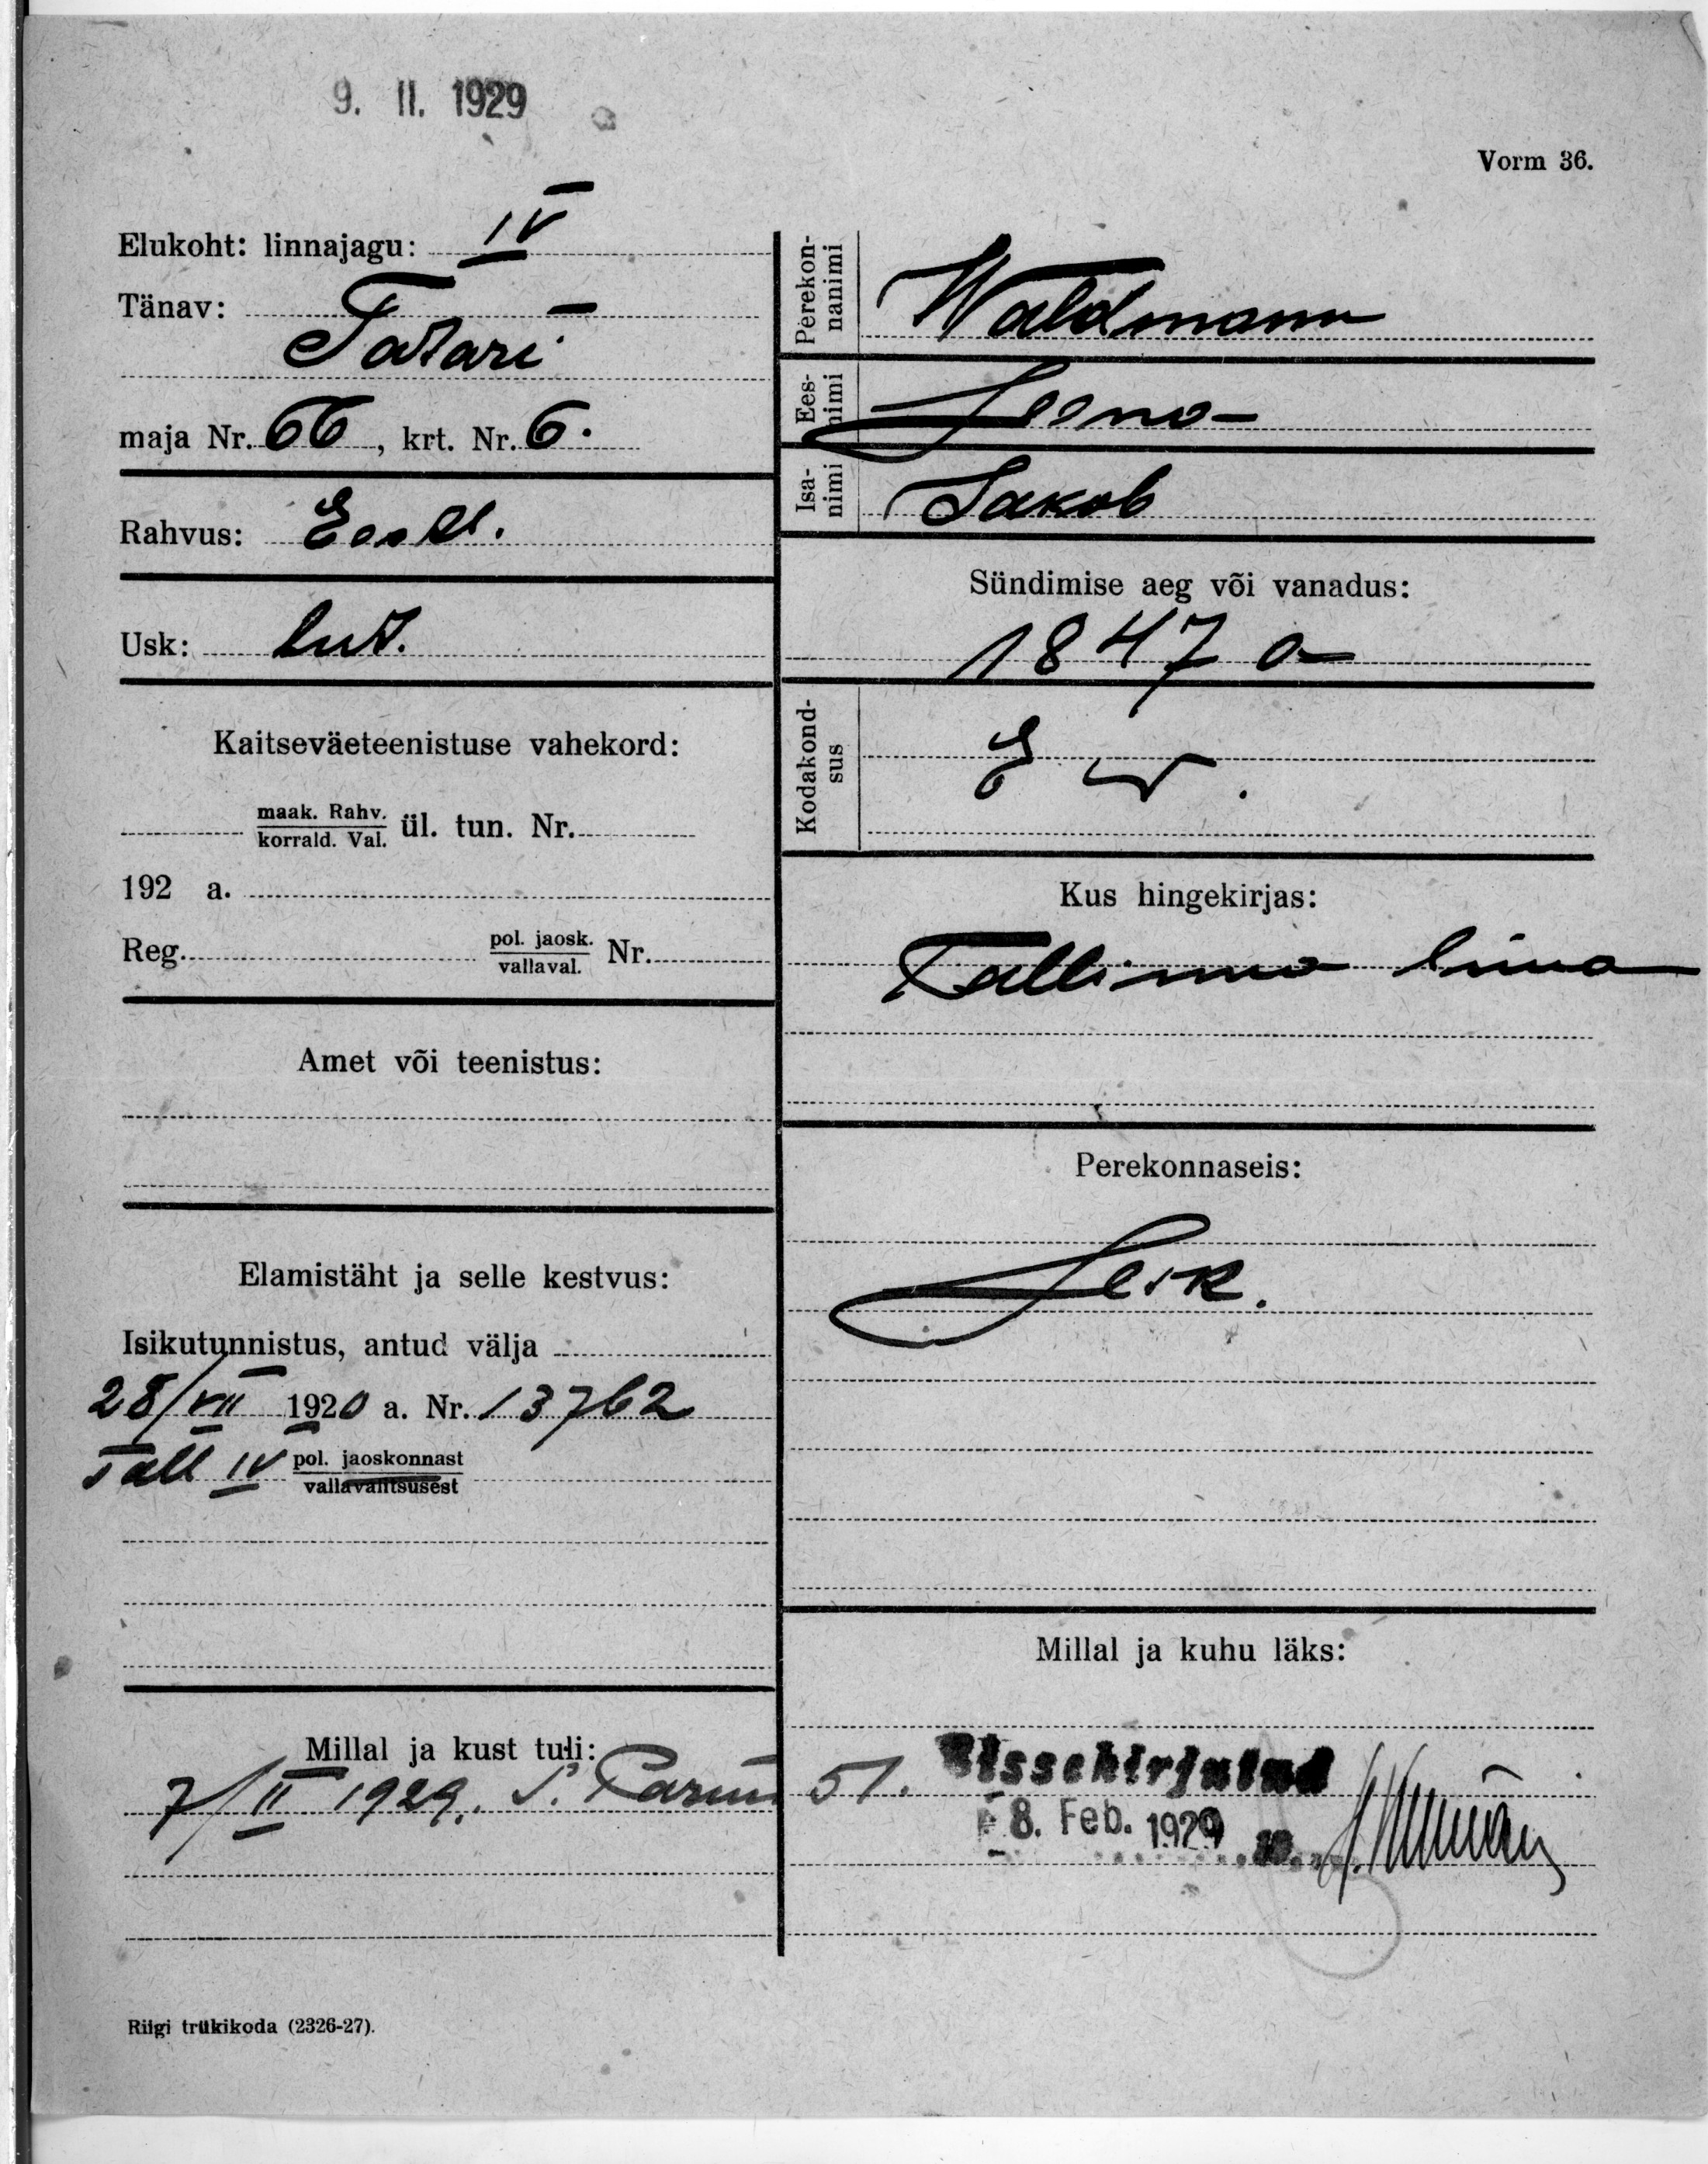 9. II. 1929
Vorm 36.
Elukoht: linnajagu: IV
Tänav:
Tatari
maja Nr. 66, krt. Nr. 6.
Rahvus: Eestl.
Usk: lut.
Kaitseväeteenistuse vahekord:
maak. Rahv.
korrald. Val. ül. tun. Nr.
192 a.
Reg. pol. jaosk.
vallaval. Nr.
Amet või teenistus:
Elamistäht ja selle kestvus:
Isikutunnistus, antud välja
28/VII 1920 a. Nr. 13762
Tall IV pol. jaoskonnast
vallavalitsusest
Millal ja kust tuli:
7/II 1929. S. Pärnu 51.
Riigi trükikoda (2326-27).
Perekon-
nanimi Waldmann
Ees-
nimi Leena
Isa-
nimi Jakob
Sündimise aeg või vanadus:
1847 a
Kodakond-
sus E W.
Kus hingekirjas:
Tallinna linna
Perekonnaseis:
Lesk.
Millal ja kuhu läks:
Sissekirjutud
8. Feb. 1929